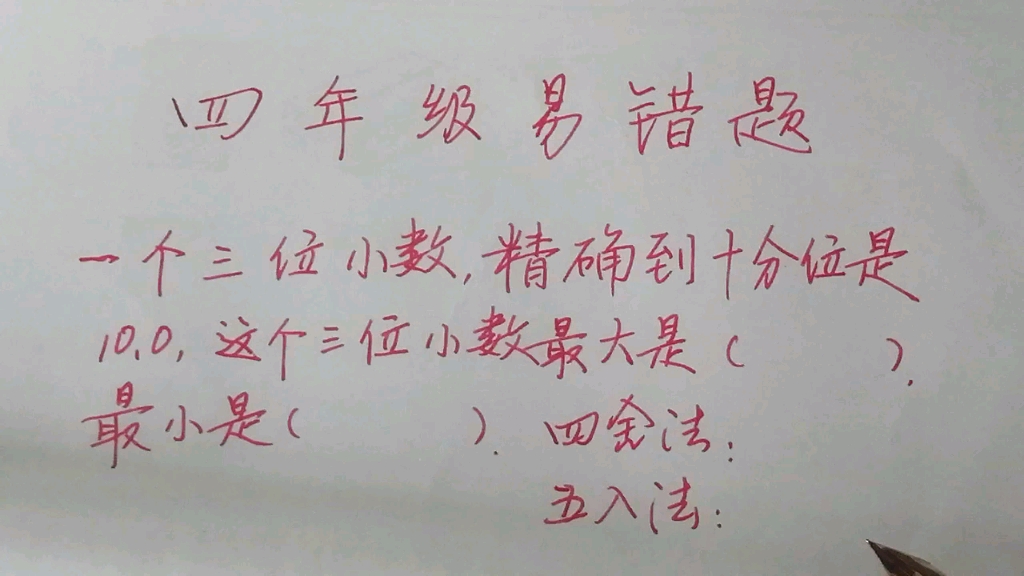 四年级易错题
一个三位小数,精确到十分位是
10.0,这个三位小数最大是( ).
最小是( ).
四舍法:
五入法: